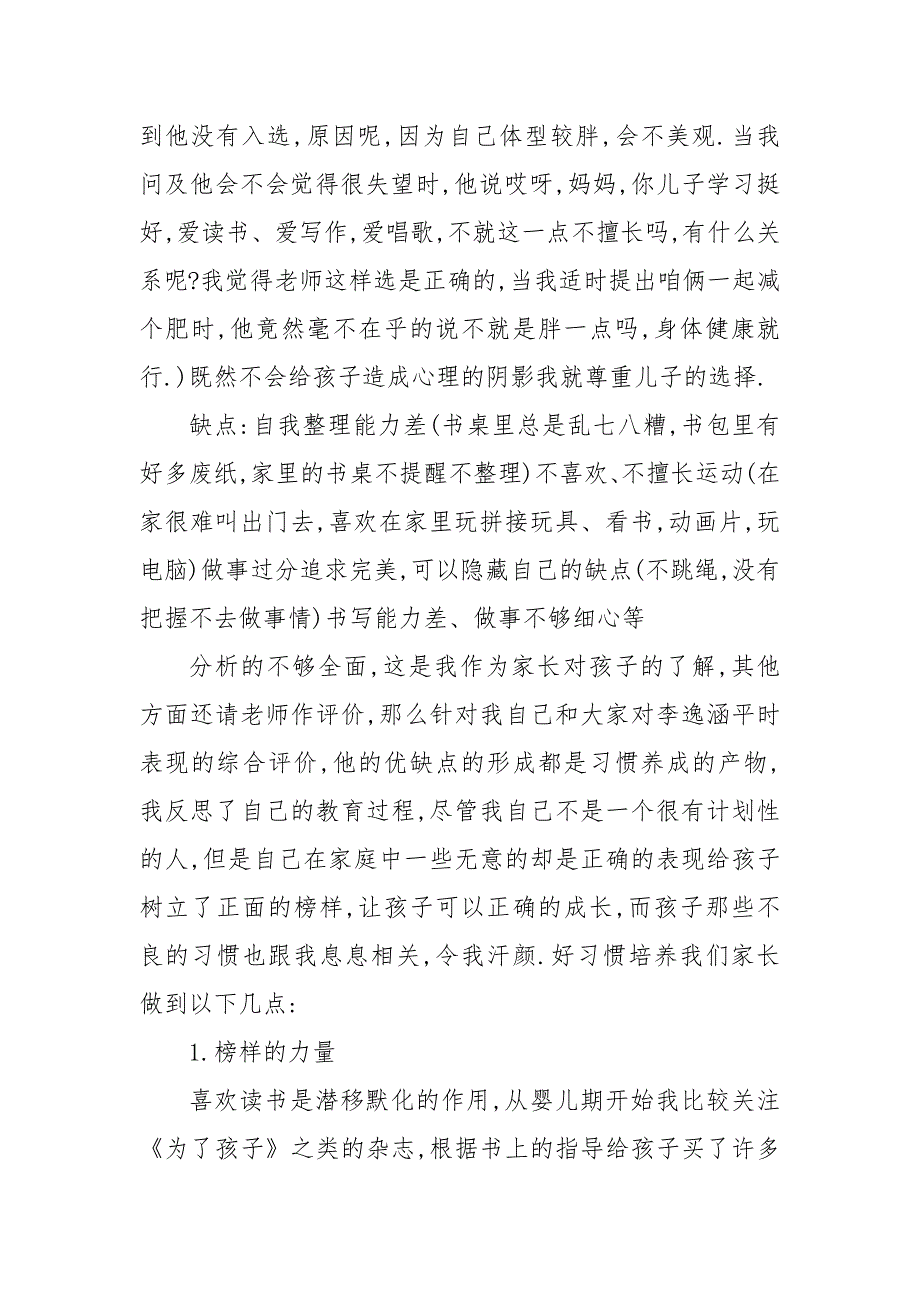 到他没有入选,原因呢,因为自己体型较胖,会不美观.当我
问及他会不会觉得很失望时,他说哎呀,妈妈,你儿子学习挺
好,爱读书、爱写作,爱唱歌,不就这一点不擅长吗,有什么关
系呢?我觉得老师这样选是正确的,当我适时提出咱俩一起减
个肥时,他竟然毫不在乎的说不就是胖一点吗,身体健康就
行.)既然不会给孩子造成心理的阴影我就尊重儿子的选择.
缺点:自我整理能力差(书桌里总是乱七八糟,书包里有
好多废纸,家里的书桌不提醒不整理)不喜欢、不擅长运动(在
家很难叫出门去,喜欢在家里玩拼接玩具、看书,动画片,玩
电脑)做事过分追求完美,可以隐藏自己的缺点(不跳绳,没有
把握不去做事情)书写能力差、做事不够细心等
分析的不够全面,这是我作为家长对孩子的了解,其他
方面还请老师作评价,那么针对我自己和大家对李逸涵平时
表现的综合评价,他的优缺点的形成都是习惯养成的产物,
我反思了自己的教育过程,尽管我自己不是一个很有计划性
的人,但是自己在家庭中一些无意的却是正确的表现给孩子
树立了正面的榜样,让孩子可以正确的成长,而孩子那些不
良的习惯也跟我息息相关,令我汗颜.好习惯培养我们家长
做到以下几点:
1.榜样的力量
喜欢读书是潜移默化的作用,从婴儿期开始我比较关注
《为了孩子》之类的杂志,根据书上的指导给孩子买了许多